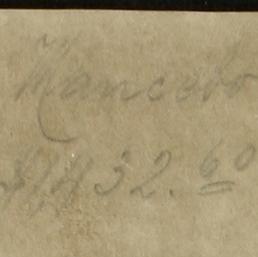 Mancebo
$1432.60